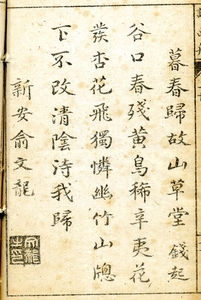 暮春歸故山草堂 錢起
谷口春殘黃鳥稀辛夷花
盡杏花飛獨憐幽竹山窗
下不改清陰待我歸
新安俞文龍